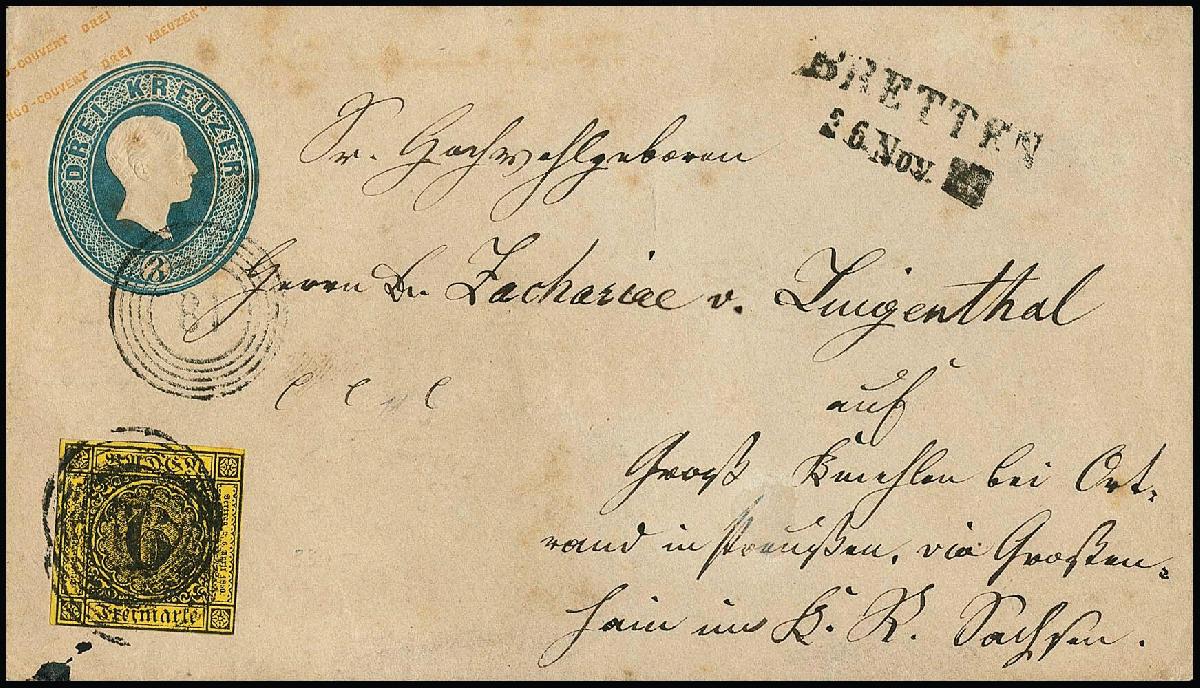 GO-COUVERT DREI
NGO-COUVERT DREI KREUZER
DREI KREUZER
3
BRETTEN
26 Nov.
Sr. Hochwohlgeboren
Herrn Dr. Zachariae v. Lingenthal
auf
Groß Kmehlen bei Ort-
rand in Preußen, via Großen-
hain im K. R. Sachsen.
81
BADEN
6
Freimarke